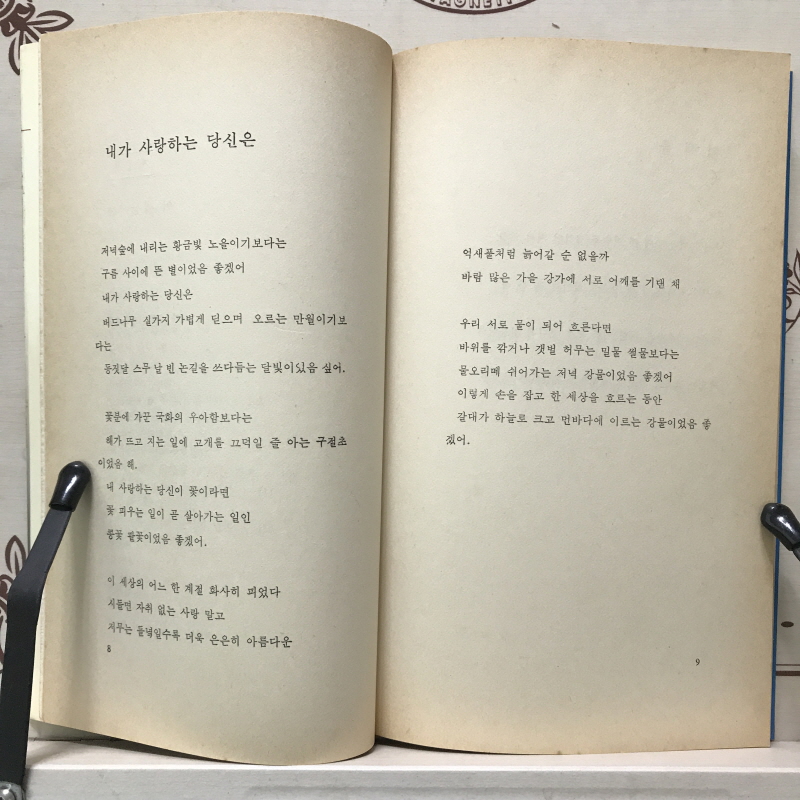 내가 사랑하는 당신은
저녁숲에 내리는 황금빛 노을이기보다는
구름 사이에 뜬 별이었음 좋겠어
내가 사랑하는 당신은
버드나무 실가지 가볍게 딛으며 오르는 만월이기보
다는
동짓달 스무 날 빈 논길을 쓰다듬는 달빛이었음 싶어.
꽃분에 가꾼 국화의 우아함보다는
해가 뜨고 지는 일에 고개를 끄덕일 줄 아는 구절초
이었음 해.
내 사랑하는 당신이 꽃이라면
꽃 피우는 일이 곧 살아가는 일인
콩꽃 팥꽃이었음 좋겠어.
이 세상의 어느 한 계절 화사히 피었다
시들면 자취 없는 사랑 말고
저무는 들녘일수록 더욱 은은히 아름다운
8
억새풀처럼 늙어갈 순 없을까
바람 많은 가을 강가에 서로 어깨를 기댄 채
우리 서로 물이 되어 흐른다면
바위를 깎거나 갯벌 허무는 밀물 썰물보다는
물오리떼 쉬어가는 저녁 강물이었음 좋겠어
이렇게 손을 잡고 한 세상을 흐르는 동안
갈대가 하늘로 크고 먼바다에 이르는 강물이었음 좋
겠어.
9